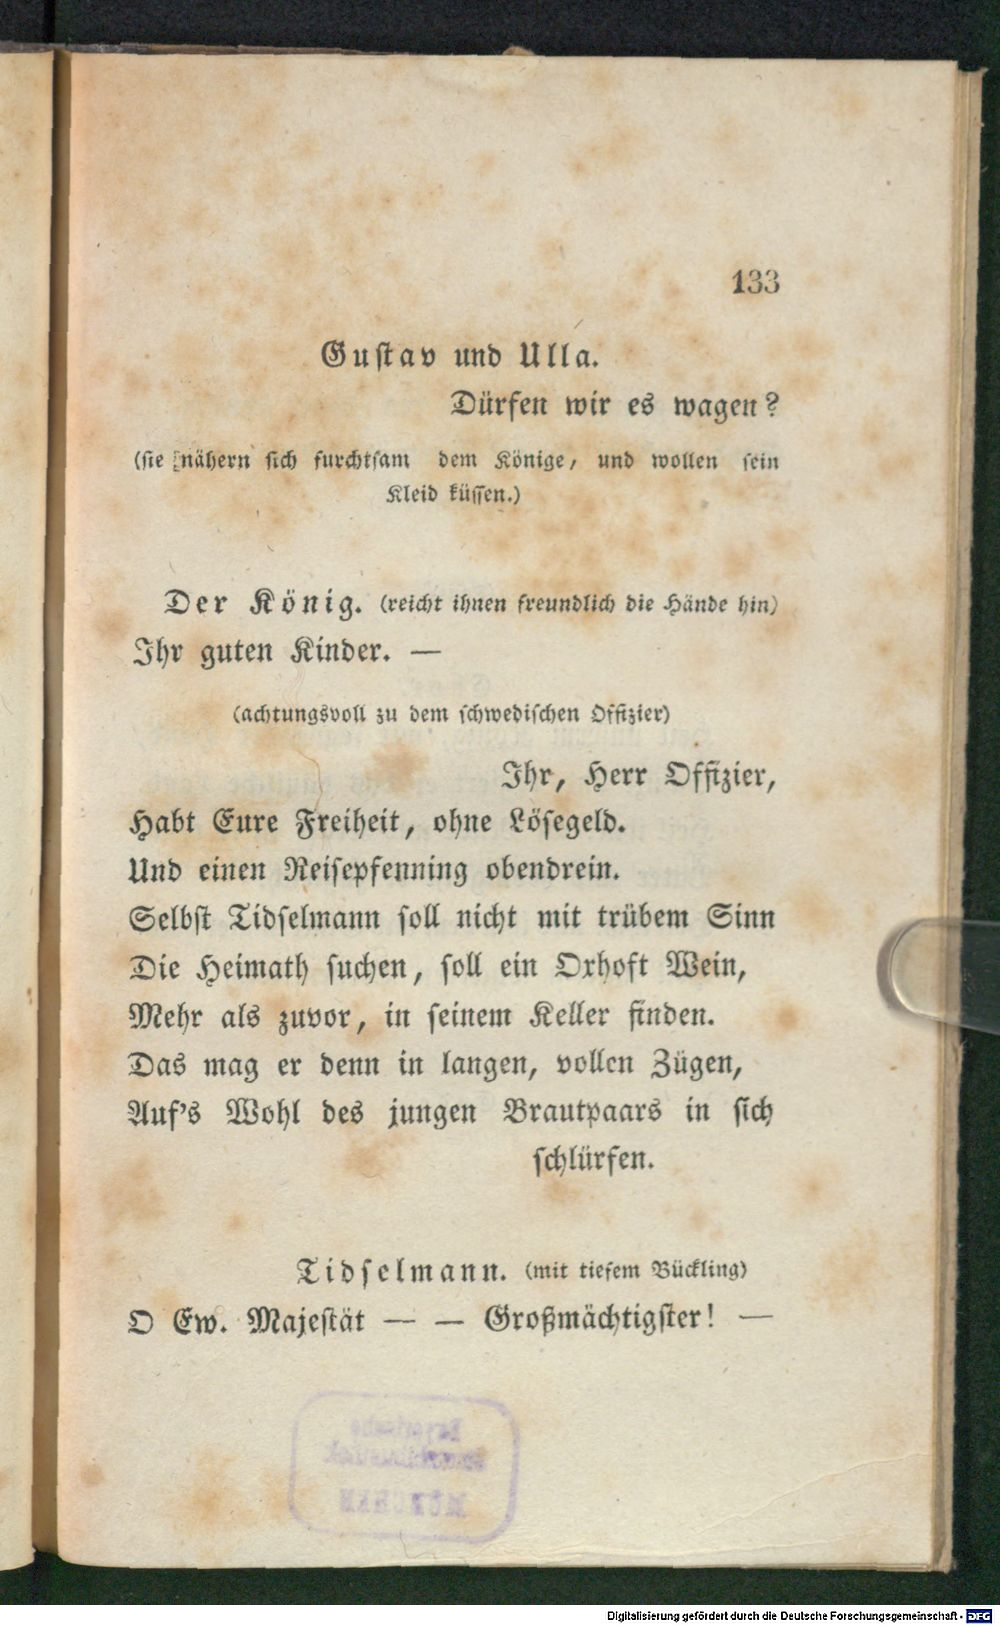 133
Gustav und Ulla.
Dürfen wir es wagen?
(sie nähern sich furchtsam dem Könige, und wollen sein
Kleid küssen.)
Der König. (reicht ihnen freundlich die Hände hin)
Ihr guten Kinder. —
(achtungsvoll zu dem schwedischen Offizier)
Ihr, Herr Offizier,
Habt Eure Freiheit, ohne Lösegeld.
Und einen Reisepfenning obendrein.
Selbst Tidselmann soll nicht mit trübem Sinn
Die Heimath suchen, soll ein Oxhoft Wein,
Mehr als zuvor, in seinem Keller finden.
Das mag er denn in langen, vollen Zügen,
Auf's Wohl des jungen Brautpaars in sich
schlürfen.
Tidselmann. (mit tiefem Bückling)
O Ew. Majestät — — Großmächtigster! —
MÜNCHEN
Digitalisierung gefördert durch die Deutsche Forschungsgemeinschaft - DFG